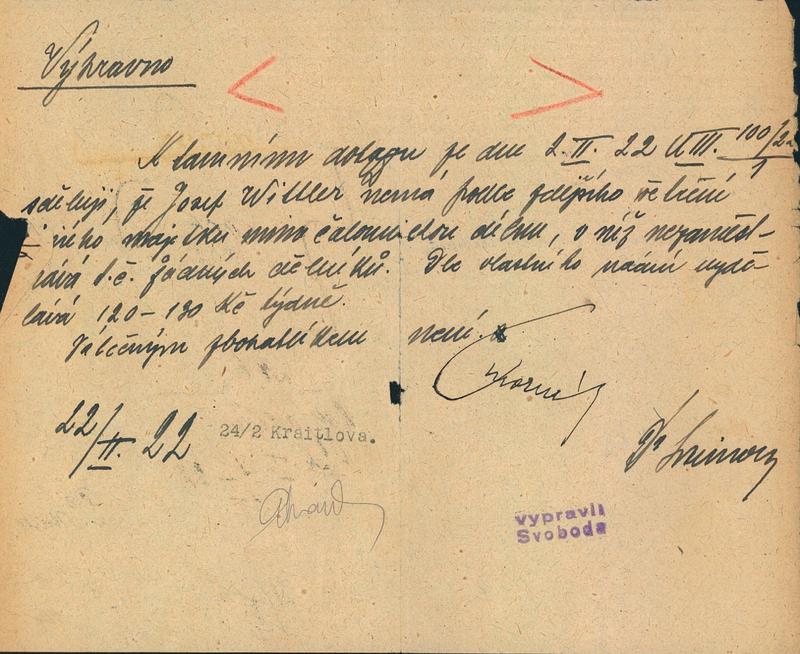 Výhravno
K tamnímu dotazu ze dne 2. II. 22 U III. 100/2
sděluji, že Josef Wittler nemá podle zdejšího šetření
jiného majetku mimo čalounickou dílnu, v níž nezaměst-
nává t.č. žádných dělníků. Dle vlastního udání vydě-
lává 120–130 Kč týdně.
Válečným zbohatlíkem není.
22/II. 22
24/2 Kraitlova.
Dr
vypravil
Svoboda